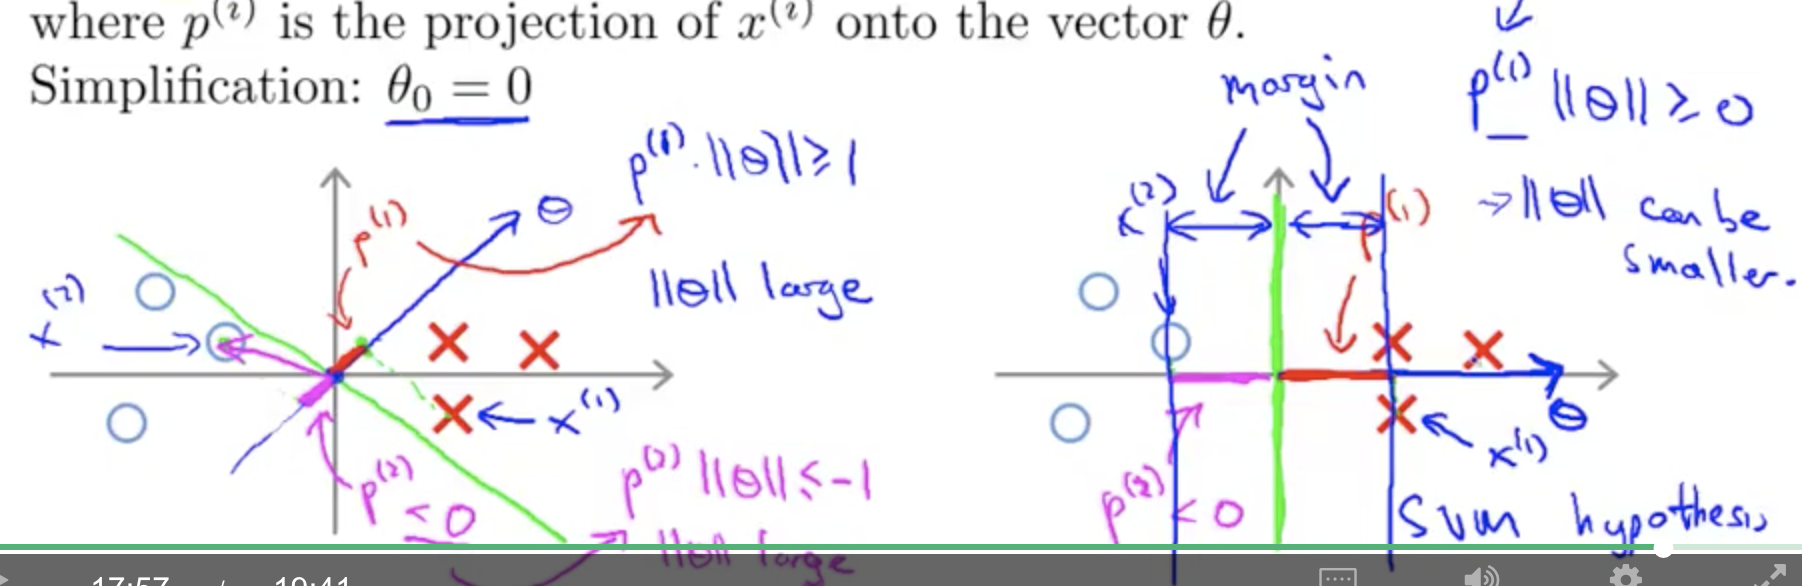 where p⁽ⁱ⁾ is the projection of x⁽ⁱ⁾ onto the vector θ.
Simplification: θ₀ = 0
p⁽¹⁾ · ||θ|| ≥ 1
θ
p⁽¹⁾
||θ|| large
x⁽²⁾
x⁽¹⁾
p⁽²⁾ < 0
p⁽²⁾ ||θ|| ≤ -1
||θ|| large
margin
p⁽¹⁾ ||θ|| ≥ 0
→ ||θ|| can be
smaller.
x⁽²⁾
p⁽¹⁾
θ
x⁽¹⁾
p⁽²⁾ < 0
SVM hypothesis
17:57 / 19:41